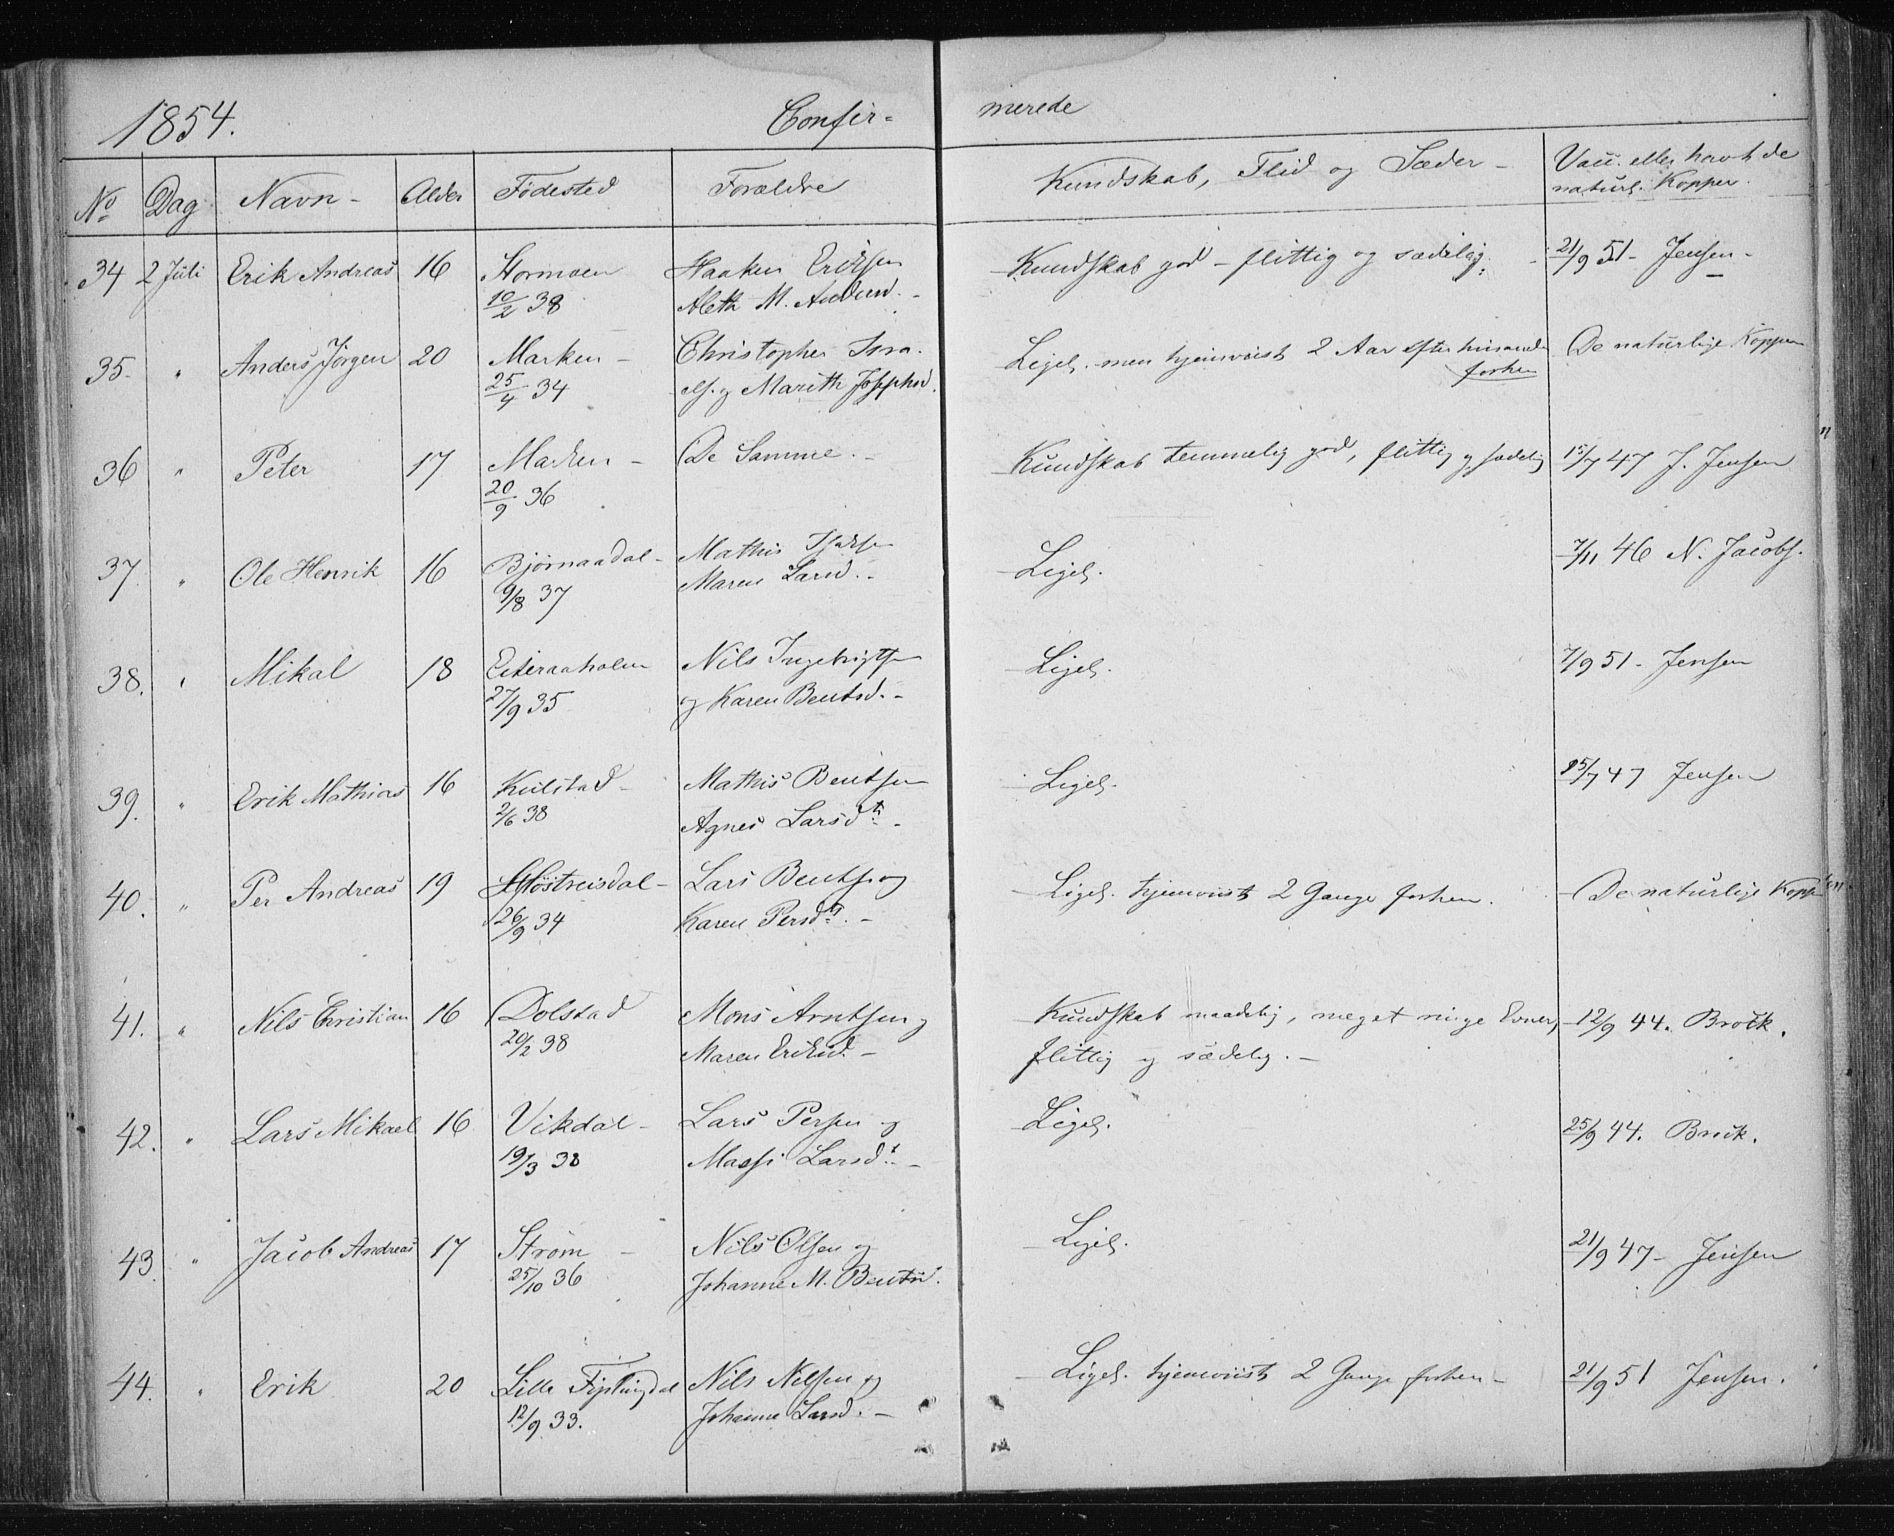 1854. Confir- merede
No Dag Navn - Alder Fødested Forældre Kundskab, Flid og Sæder - Vacc. eller havt de
naturl. Kopper.
34 2 Juli Erik Andreas 16 Stormoen Haaken Eriksen Kundskab god - flittig og sædelig. 21/9 51 - Jensen -
10/2 38 Aleth M. Andersd. -
35. " Anders Jørgen 20 Marken - Christopher Isra- Ligel. men hjemviist 2 Aar efter hinanden De naturlige Kopper
forhen
25/4 34 els. og Marith Josephsd.
36 " Peter 17 Marken - De Samme. - Kundskab temmelig god, flittig og sædelig 15/7 47 J. Jensen
20/9 36
37. " Ole Henrik 16 Bjørnaadal - Mathis Ligel. 7/11 46 N. Jacobs.
9/8 37 Maren Larsd. -
38. " Mikal 18 Eiteraaholm Nils Ingebrigtsen Ligel. 7/9 51 - Jensen
27/9 35 og Karen Bentsd. -
39. " Erik Mathias 16 Kulstad - Mathis Bentsen Ligel. 15/7 47 Jensen
2/6 38 Agnes Larsdtr. -
40. " Per Andreas 19 Lars Bents. og Ligel. hjemviist 2 Gange forhen. De naturlige Koppen
26/9 34 Karen Persdtr. -
41. " Nils Christian 16 Dolstad Mons Arntsen og Kundskab maadelig, meget ringe Evner, 12/9 44. Brock.
20/2 38 Maren Eriksd. - flittig og sædelig. -
42. " Lars Mikael 16 Vikdal - Lars Persen og Ligel. 25/9 44. Brock.
19/3 38 Massi Larsdtr. -
43. " Jacob Andreas 17 Strøm - Nils Olsen og Ligel. 21/9 47 - Jensen
25/10 36 Johanne M. Bentsd.
44. " Erik 20 Lille Fiplingdal Nils Nilsen og Ligel. hjemviist 2 Gange forhen - 21/9 51 Jensen.
12/9 33. Johanna Larsd. -